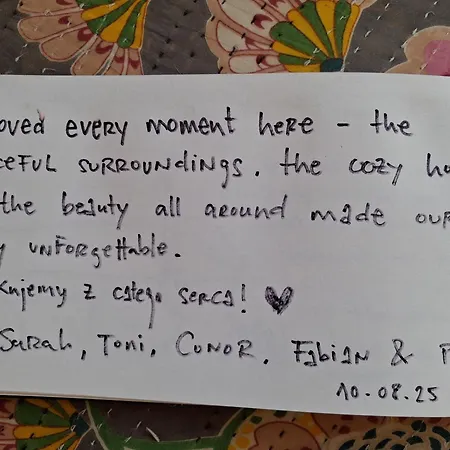 oved every moment here - the
ceful surroundings. the cozy ho
the beauty all around made our
y unforgettable.
kujemy z całego serca! ♥
Sarah, Toni, Conor, Fabian &
10.08.25